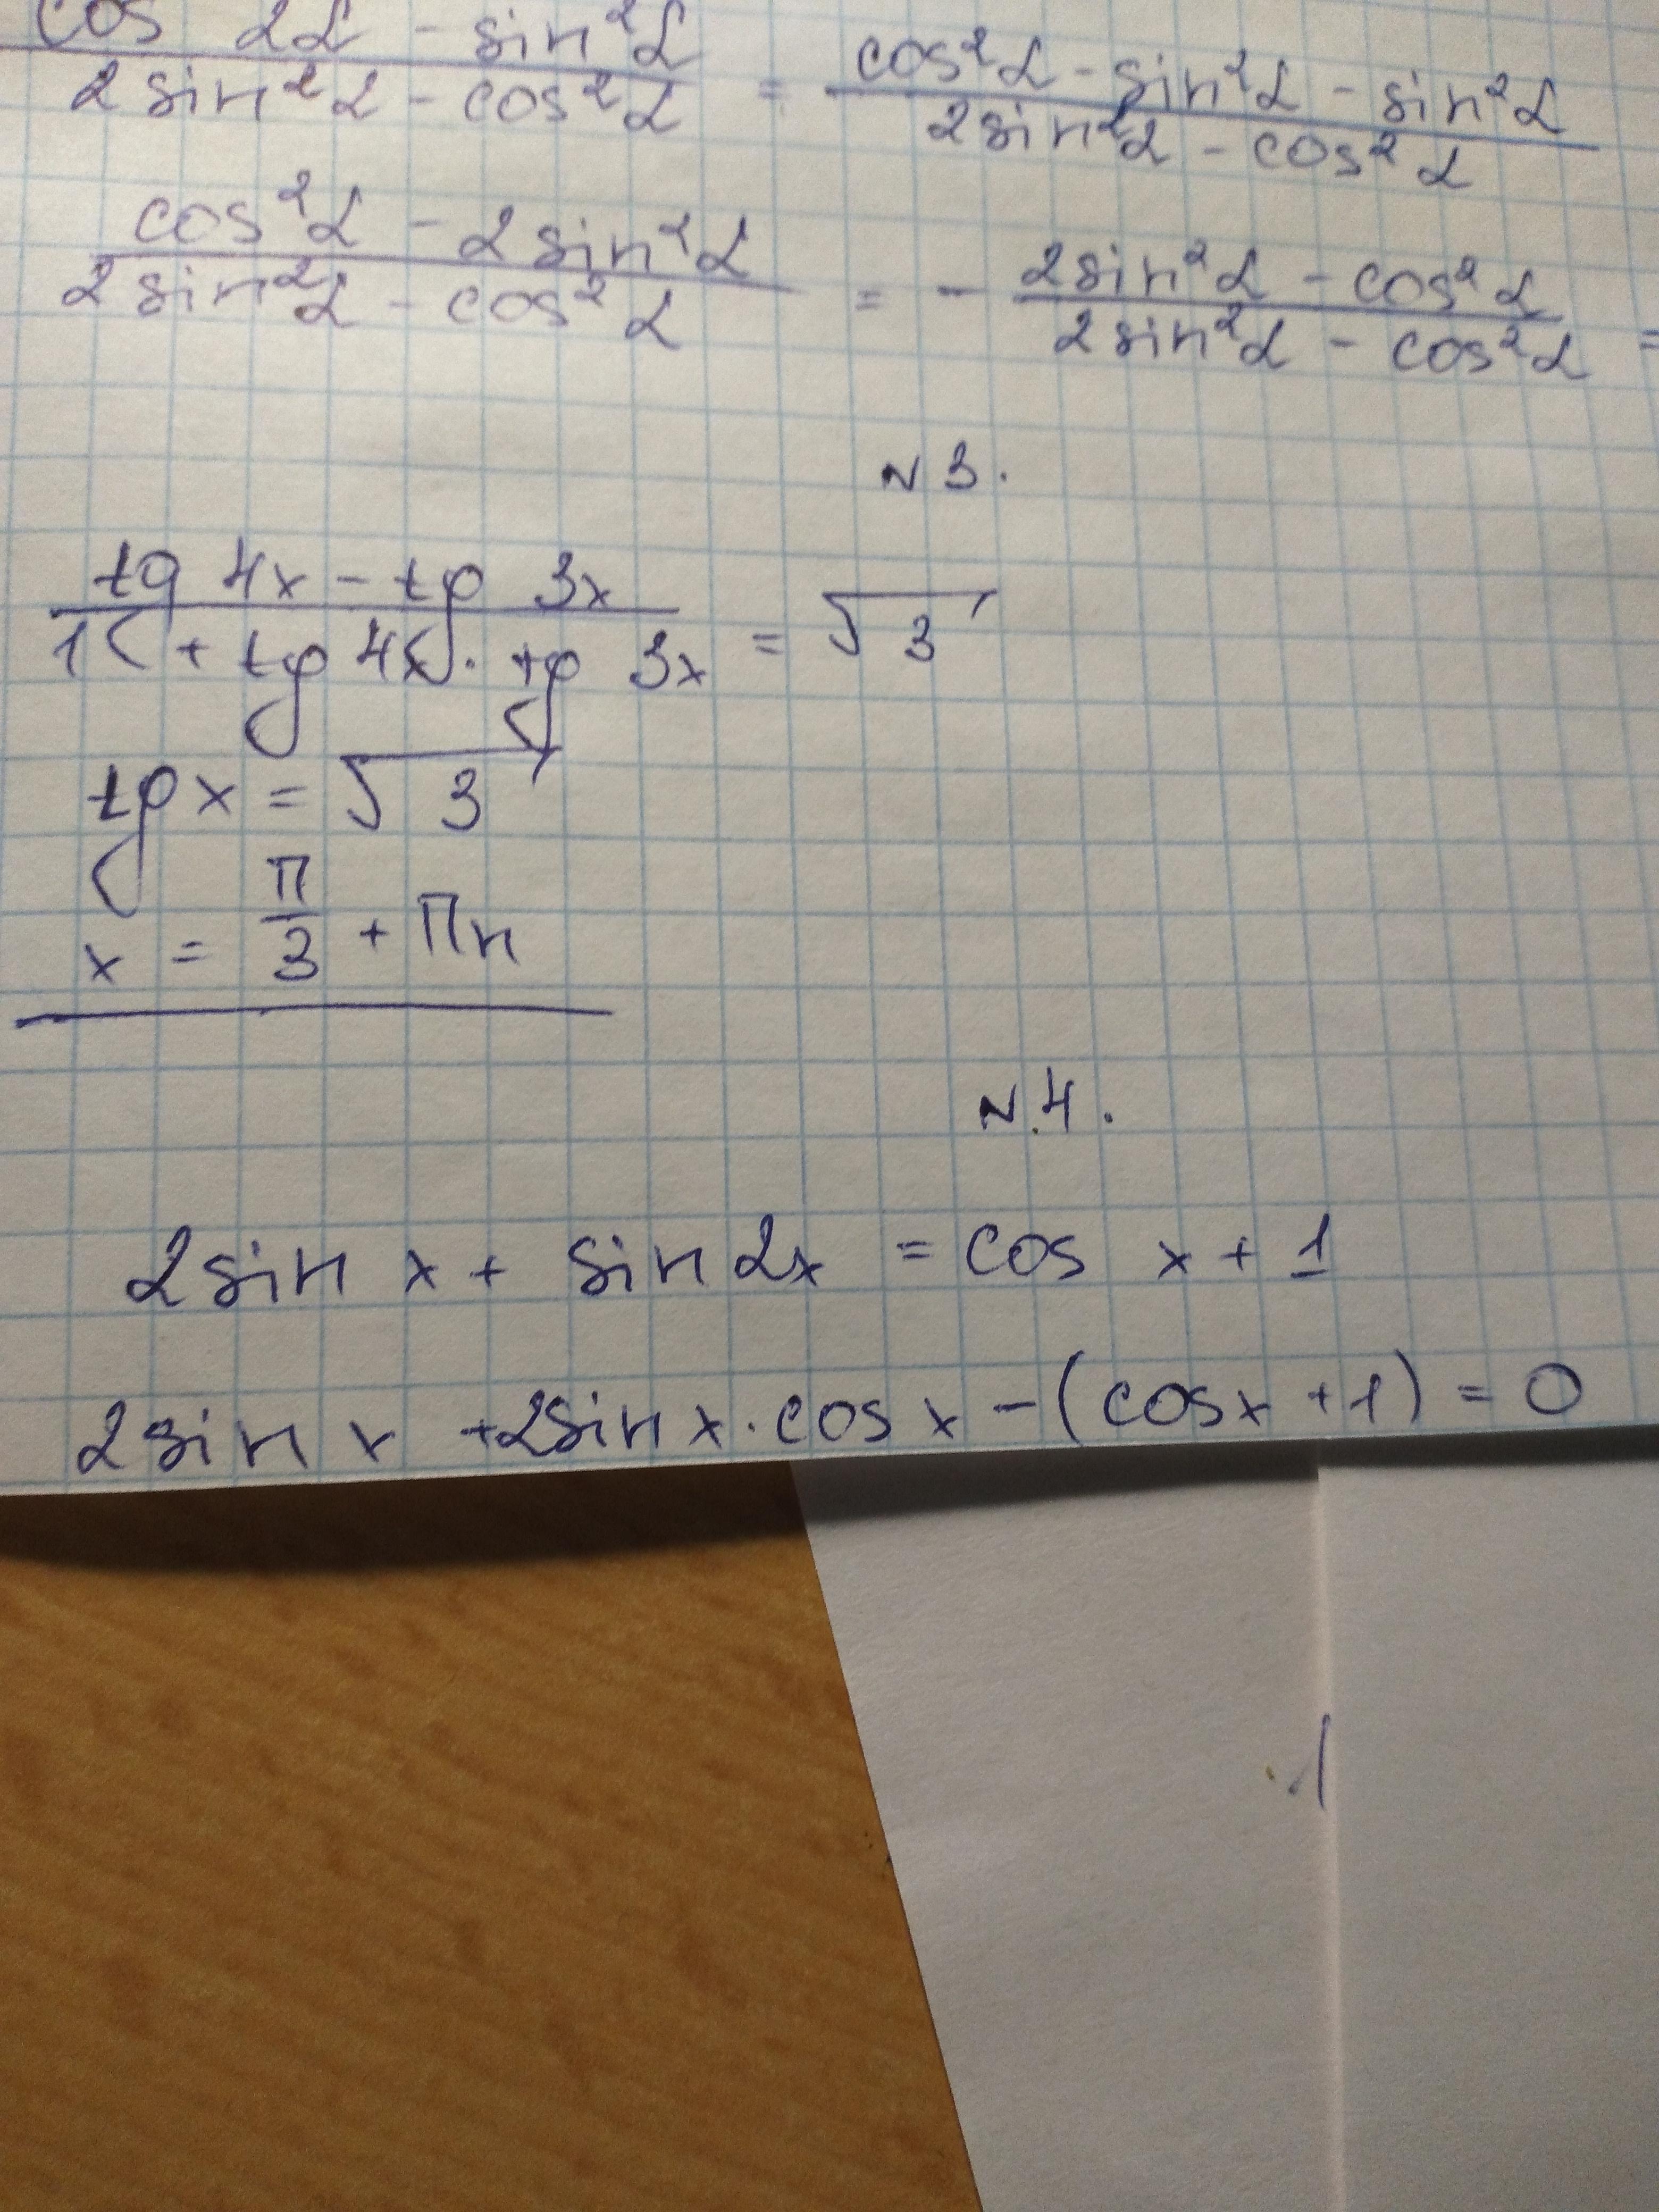 cos 2α - sin²α / 2sin²α - cos²α = cos²α - sin²α - sin²α / 2sin²α - cos²α
cos²α - 2sin²α / 2sin²α - cos²α = - 2sin²α - cos²α / 2sin²α - cos²α =
N 3.
tg 4x - tg 3x / 1 + tg 4x · tg 3x = √3
tg x = √3
x = π/3 + πn
N.4.
2sin x + sin 2x = cos x + 1
2sin x + 2sin x · cos x - (cos x + 1) = 0